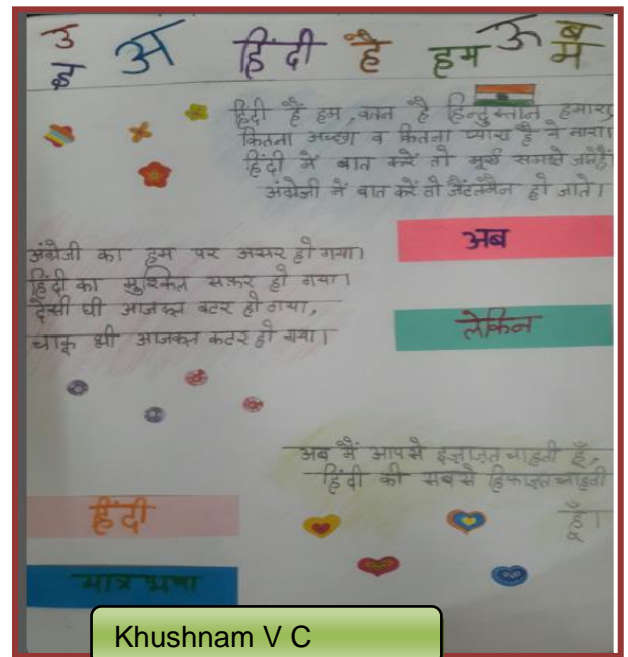 उ
इ
अ
हिंदी है हम
ऊ
ब
म
हिंदी है हम, वतन है हिन्दुस्तान हमारा,
कितना अच्छा व कितना प्यारा है ये नारा।
हिंदी में बात करें तो मूर्ख समझे जाते हैं
अंग्रेजी में बात करें तो जैंटलमैन हो जाते।
अंग्रेजी का हम पर असर हो गया।
हिंदी का मुश्किल सफ़र हो गया।
देसी घी आजकल बटर हो गया,
चाकू भी आजकल कटर हो गया।
अब
लेकिन
अब मैं आपसे इज़ाज़त चाहती हूँ,
हिंदी की सबसे हिफाज़त चाहती
हूँ।
हिंदी
मात्र भाषा
Khushnam V C